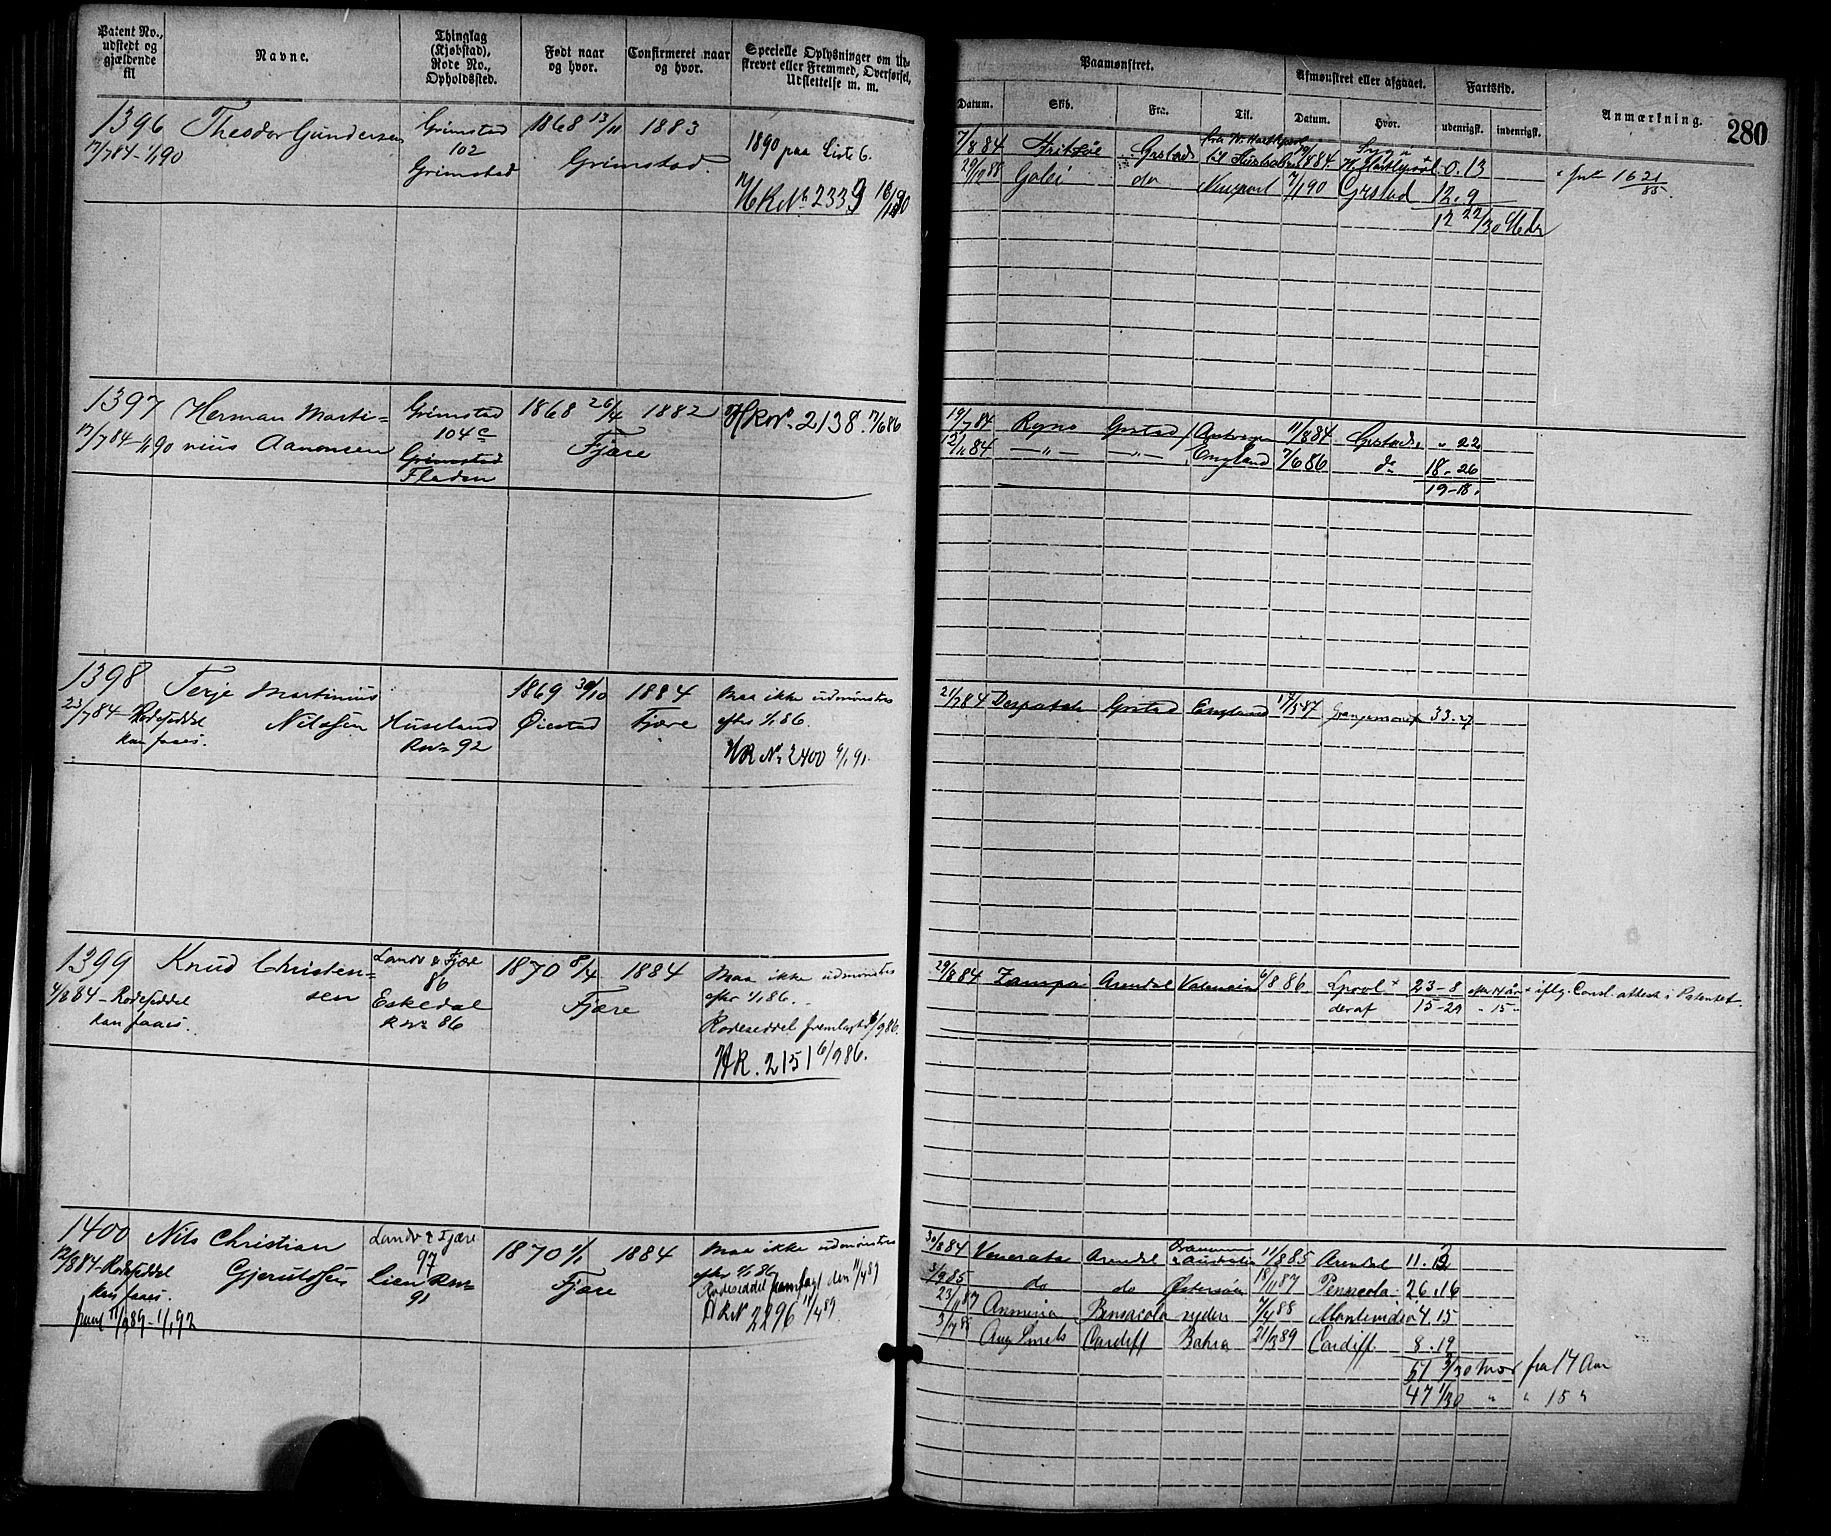 Patent No.,
udstedt og
gjældende
til
Navne.
Thinglag
(Kjøbstad),
Rode No.,
Opholdssted.
Født naar
og hvor.
Confirmeret naar
og hvor.
Specielle Oplysninger om Ud-
skrevet eller Fremmed, Overførsel,
Udslettelse m. m.
Paamønstret.
Datum.
Skib.
Fra.
Til.
Afmønstret eller afgaaet.
Datum.
Hvor.
Fartstid.
udenrigsk.
indenrigsk.
Anmærkning.
280
1396
17/7 84 - 1/1 90
Theodor Gundersen
Grimstad
102
Grimstad
1868 13/11
1883
Grimstad.
1890 paa Liste 6.
HR No 2339
7/8 84
Grstad
0.13
29/10 88
do
Newport
7/1 90
Grstad
12.9
12 22/30 Mdr
1397
17/7 84 - 1/1 90
Herman Marti-
nius Aanonsen
Grimstad
104c
Grimstad
Fladen
1868 26/4
1882
Fjære
HR No. 2138. 7/6 86
19/7 84
Ryno
Grstad
Antwerpen
11/8 84
Grstad
" 22
12/11 84
— " —
— " —
England
7/6 86
do
18. 26
19-18.
1398
23/7 84 - Rodeseddel
kan faaes.
Terje Martinius
Nilssen
Huseland
RNo 92
1869 30/10
Øiestad
1884
Fjære
Maa ikke udmønstres
efter 1/1 86.
HR No 2400 6/1 91.
21/7 84
Despatch
Grstad
England
Grangemouth
33. 27
1399
4/8 84 - Rodeseddel
kan faaes.
Knud Christen-
sen
Landv & Fjære
86
Eskedal
RNo 86
1870 8/4
1884
Fjære
Maa ikke udmønstres
efter 1/1 86.
Rodeseddel fremlagt 6/9 86.
HR. 2151 6/9 86.
29/8 84
Zampa
Arendal
Valencia
6/8 86
Lpool +
23-8
efter 14 år
+ iflg. Consl. attest i Patentet.
deraf
15-29
" 15 "
1400
12/8 84 - Rodeseddel
kan faaes.
11/4 89 - 1/1 92
Nils Christian
Gjeruldsen
Landv & Fjære
97
Lien RNo
91
1870 1/1
1884
Fjære
Maa ikke udmønstres
efter 1/1 86
Rodeseddel fremlagt den 11/4 89
HR No 2296 11/4 89
30/8 84
Arendal
11/8 85
Arendal
11. 12
3/9 85
do
do
Østersøen
18/11 87
Pensacola
26. 16
23/11 87
Pensacola
7/4 88
Montevideo
4. 15
3/7 88
Aug Smets
Cardiff
Bahia
21/3 89
Cardiff
8. 19
51 2/30 Mdr fra 14 Aar
47 1/30 " " 15 "